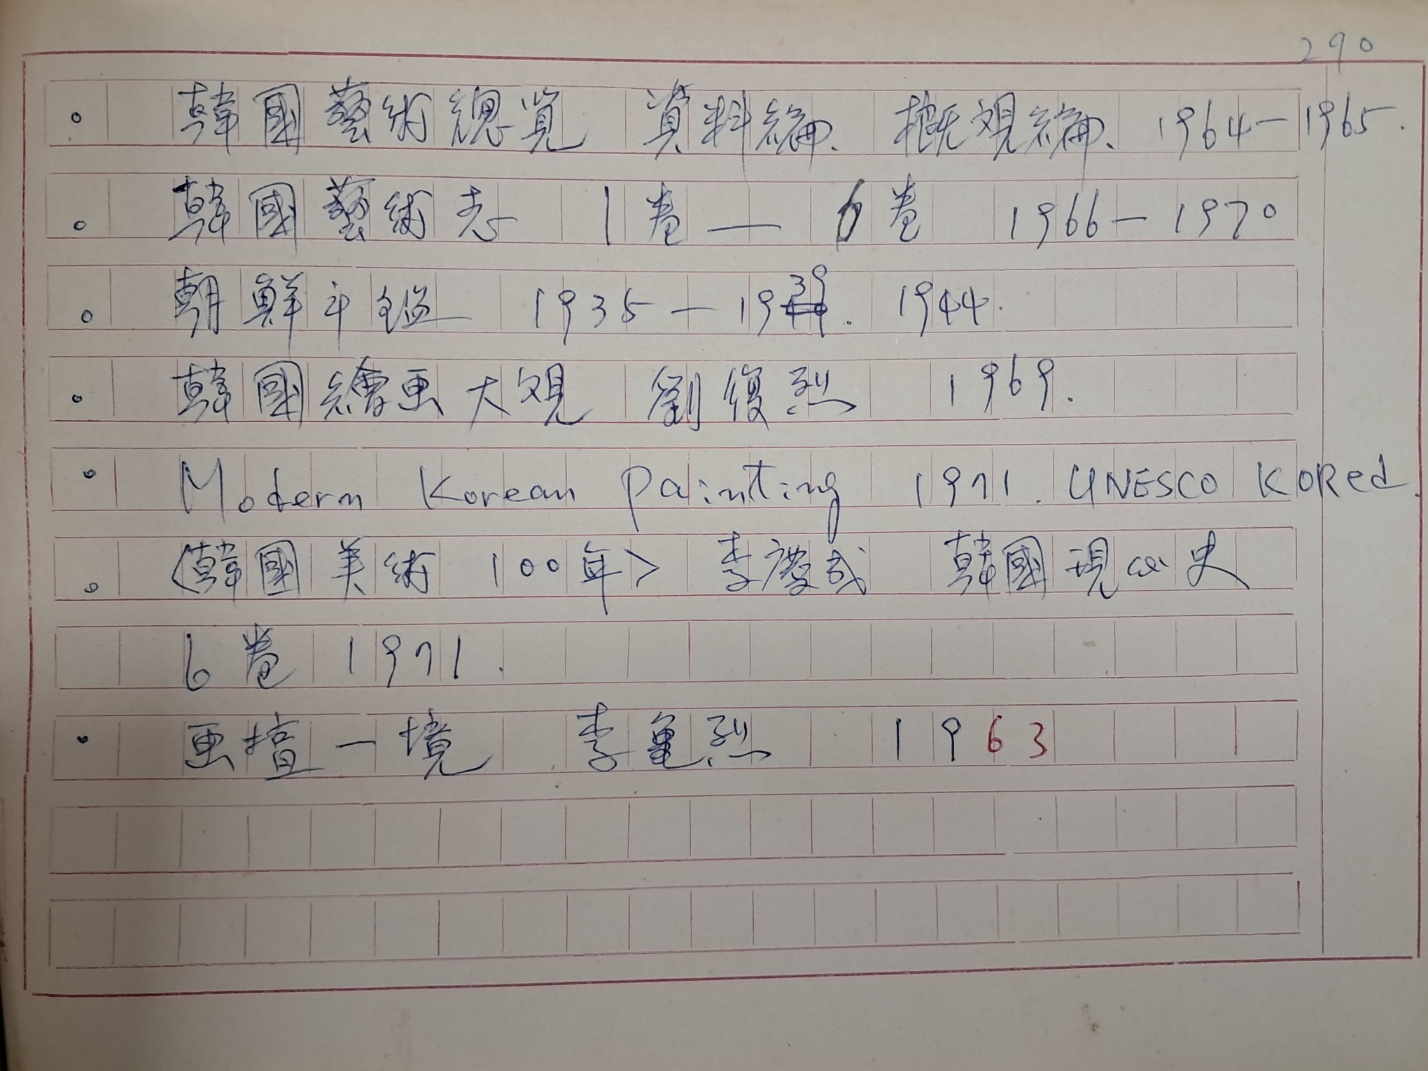 290
。 韓國藝術總覧 資料編、概観編、1964-1965.
。 韓國藝術志 1巻 — 6巻 1966-1970
。 朝鮮年鑑 1935-1939. 1944.
。 韓國繪画大観 劉復烈 1969.
。 Modern Korean Painting 1971. UNESCO KORea.
。 <韓國美術 100年> 李慶成 韓國現代史
6巻 1971.
。 画壇一境 李亀烈 1963